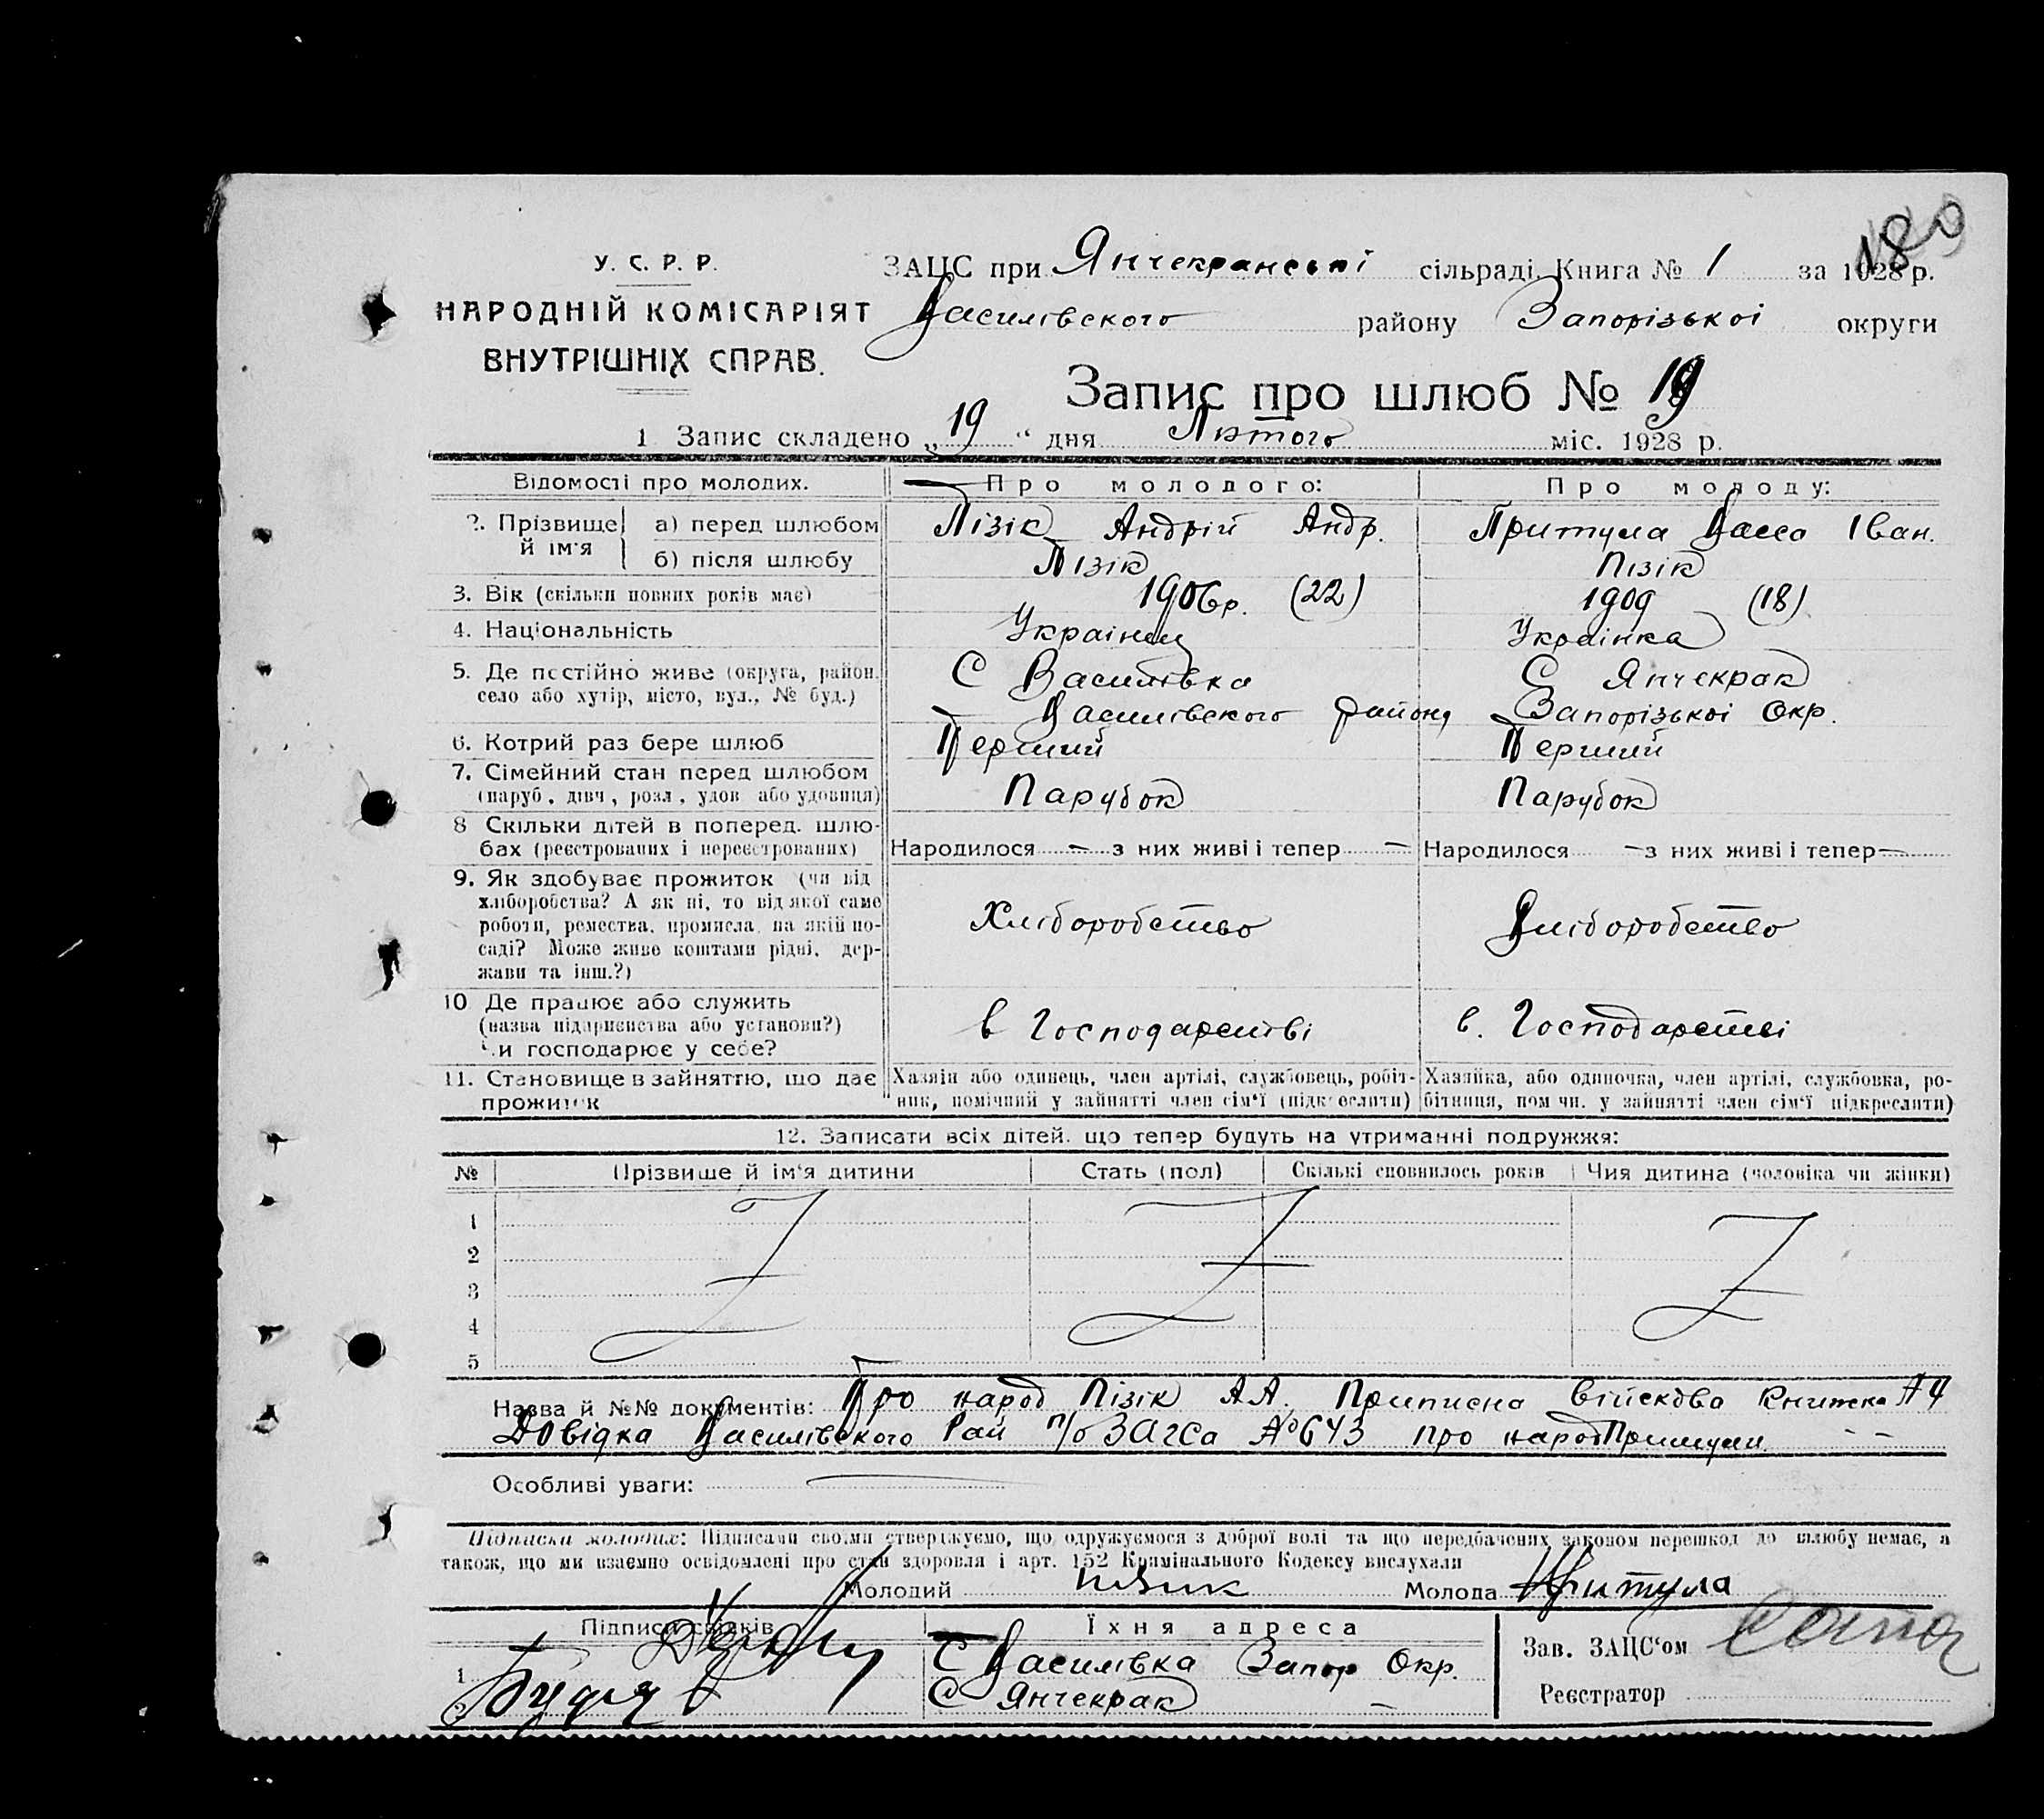 180
У. С. Р. Р.
НАРОДНІЙ КОМІСАРІЯТ
ВНУТРІШНІХ СПРАВ.
ЗАЦС при Янчекранські сільраді. Книга № 1 за 1928 р.
Василівского району Запорізькоі округи
Запис про шлюб № 19
1 Запис складено „19“ дня Лютого міс. 1928 р.
Відомості про молодих. Про молодого: Про молоду:
2. Прізвище й ім'я а) перед шлюбом Пізік Андрій Андр. Притула Васса Іван.
б) після шлюбу Пізік Пізік
3. Вік (скільки повних років має) 1906р. (22) 1909 (18)
4. Національність Украінец Украінка
5. Де постійно живе (округа, район, село або хутір, місто, вул., № буд.) С Василівка С Янчекрак
Василівского району Запорізькоі Окр.
6. Котрий раз бере шлюб Перший Перший
7. Сімейний стан перед шлюбом Парубок Парубок
(паруб., дівч., розл., удов. або удовиця)
8 Скільки дітей в поперед. шлюбах (реєстрованих і нереєстрованих) Народилося — з них живі і тепер — Народилося — з них живі і тепер —
9. Як здобуває прожиток (чи від
хліборобства? А як ні, то від якої саме
роботи, ремества, промисла, на якій по-
саді? Може живе коштами рідні, дер-
жави та інш.?)
Хліборобство Хліборобство
10 Де працює або служить
(назва підприємства або установи?)
Чи господарює у себе?
в Господарстві в. Господарстві
11. Становище в зайняттю, що дає прожиток
Хазяїн або одинець, член артілі, службовець, робіт-
ник, помічний у зайнятті член сім'ї (підкреслити)
Хазяйка, або одиночка, член артілі, службовка, ро-
бітниця, помічн. у зайнятті член сім'ї підкреслити)
12. Записати всіх дітей, що тепер будуть на утриманні подружжя:
№ Прізвище й ім'я дитини Стать (пол) Скількі сповнилось років Чия дитина (чоловіка чи жінки)
1
2
3
4
5
Назва й №№ документів: Про народ Пізік А А. Приписна війскова книжка
Довідка Василівского Рай п/о ЗАгСа № 643 про народ Притули - -
Особливі уваги:
Підписи молодих: Підписами своїми стверджуємо, що одружуємося з доброї волі та що передбачених законом перешкод до шлюбу немає, а
також, що ми взаємно освідомлені про стан здоровля і арт. 152 Кримінального Кодексу вислухали
Молодий Пізик Молода Притула
Підписи свідків Їхня адреса Зав. ЗАЦС'ом
1 С Василівка Запор Окр.
2 С Янчекрак —
Реєстратор